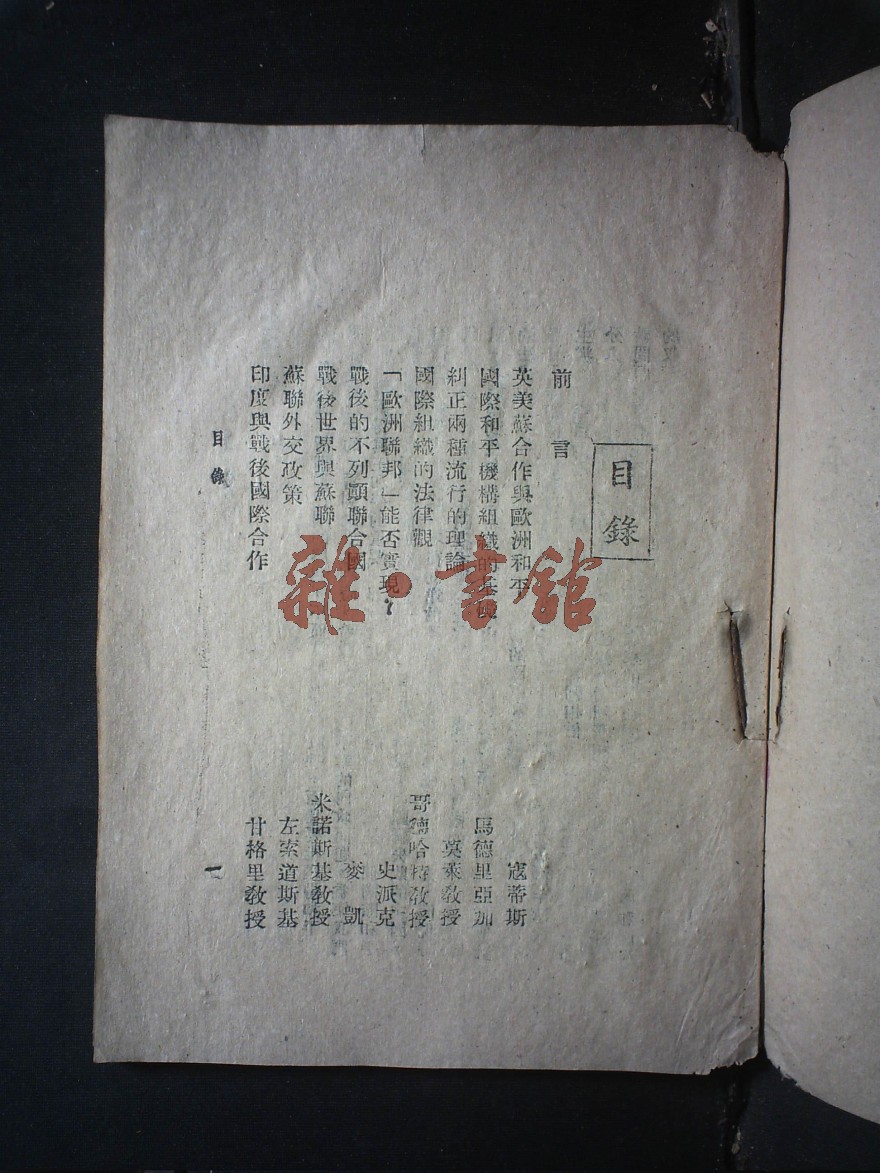 目錄
前言
英美蘇合作與歐洲和平 寇蒂斯
國際和平機構組織的基礎 馬德里亞加
糾正兩種流行的理論 莫萊教授
國際組織的法律觀 哥德哈特教授
「歐洲聯邦」能否實現？ 史派克
戰後的不列顛聯合國 麥凱
戰後世界與蘇聯 米諾斯基教授
蘇聯外交政策 左索道斯基
印度與戰後國際合作 甘格里教授
目錄
一
雜·書館